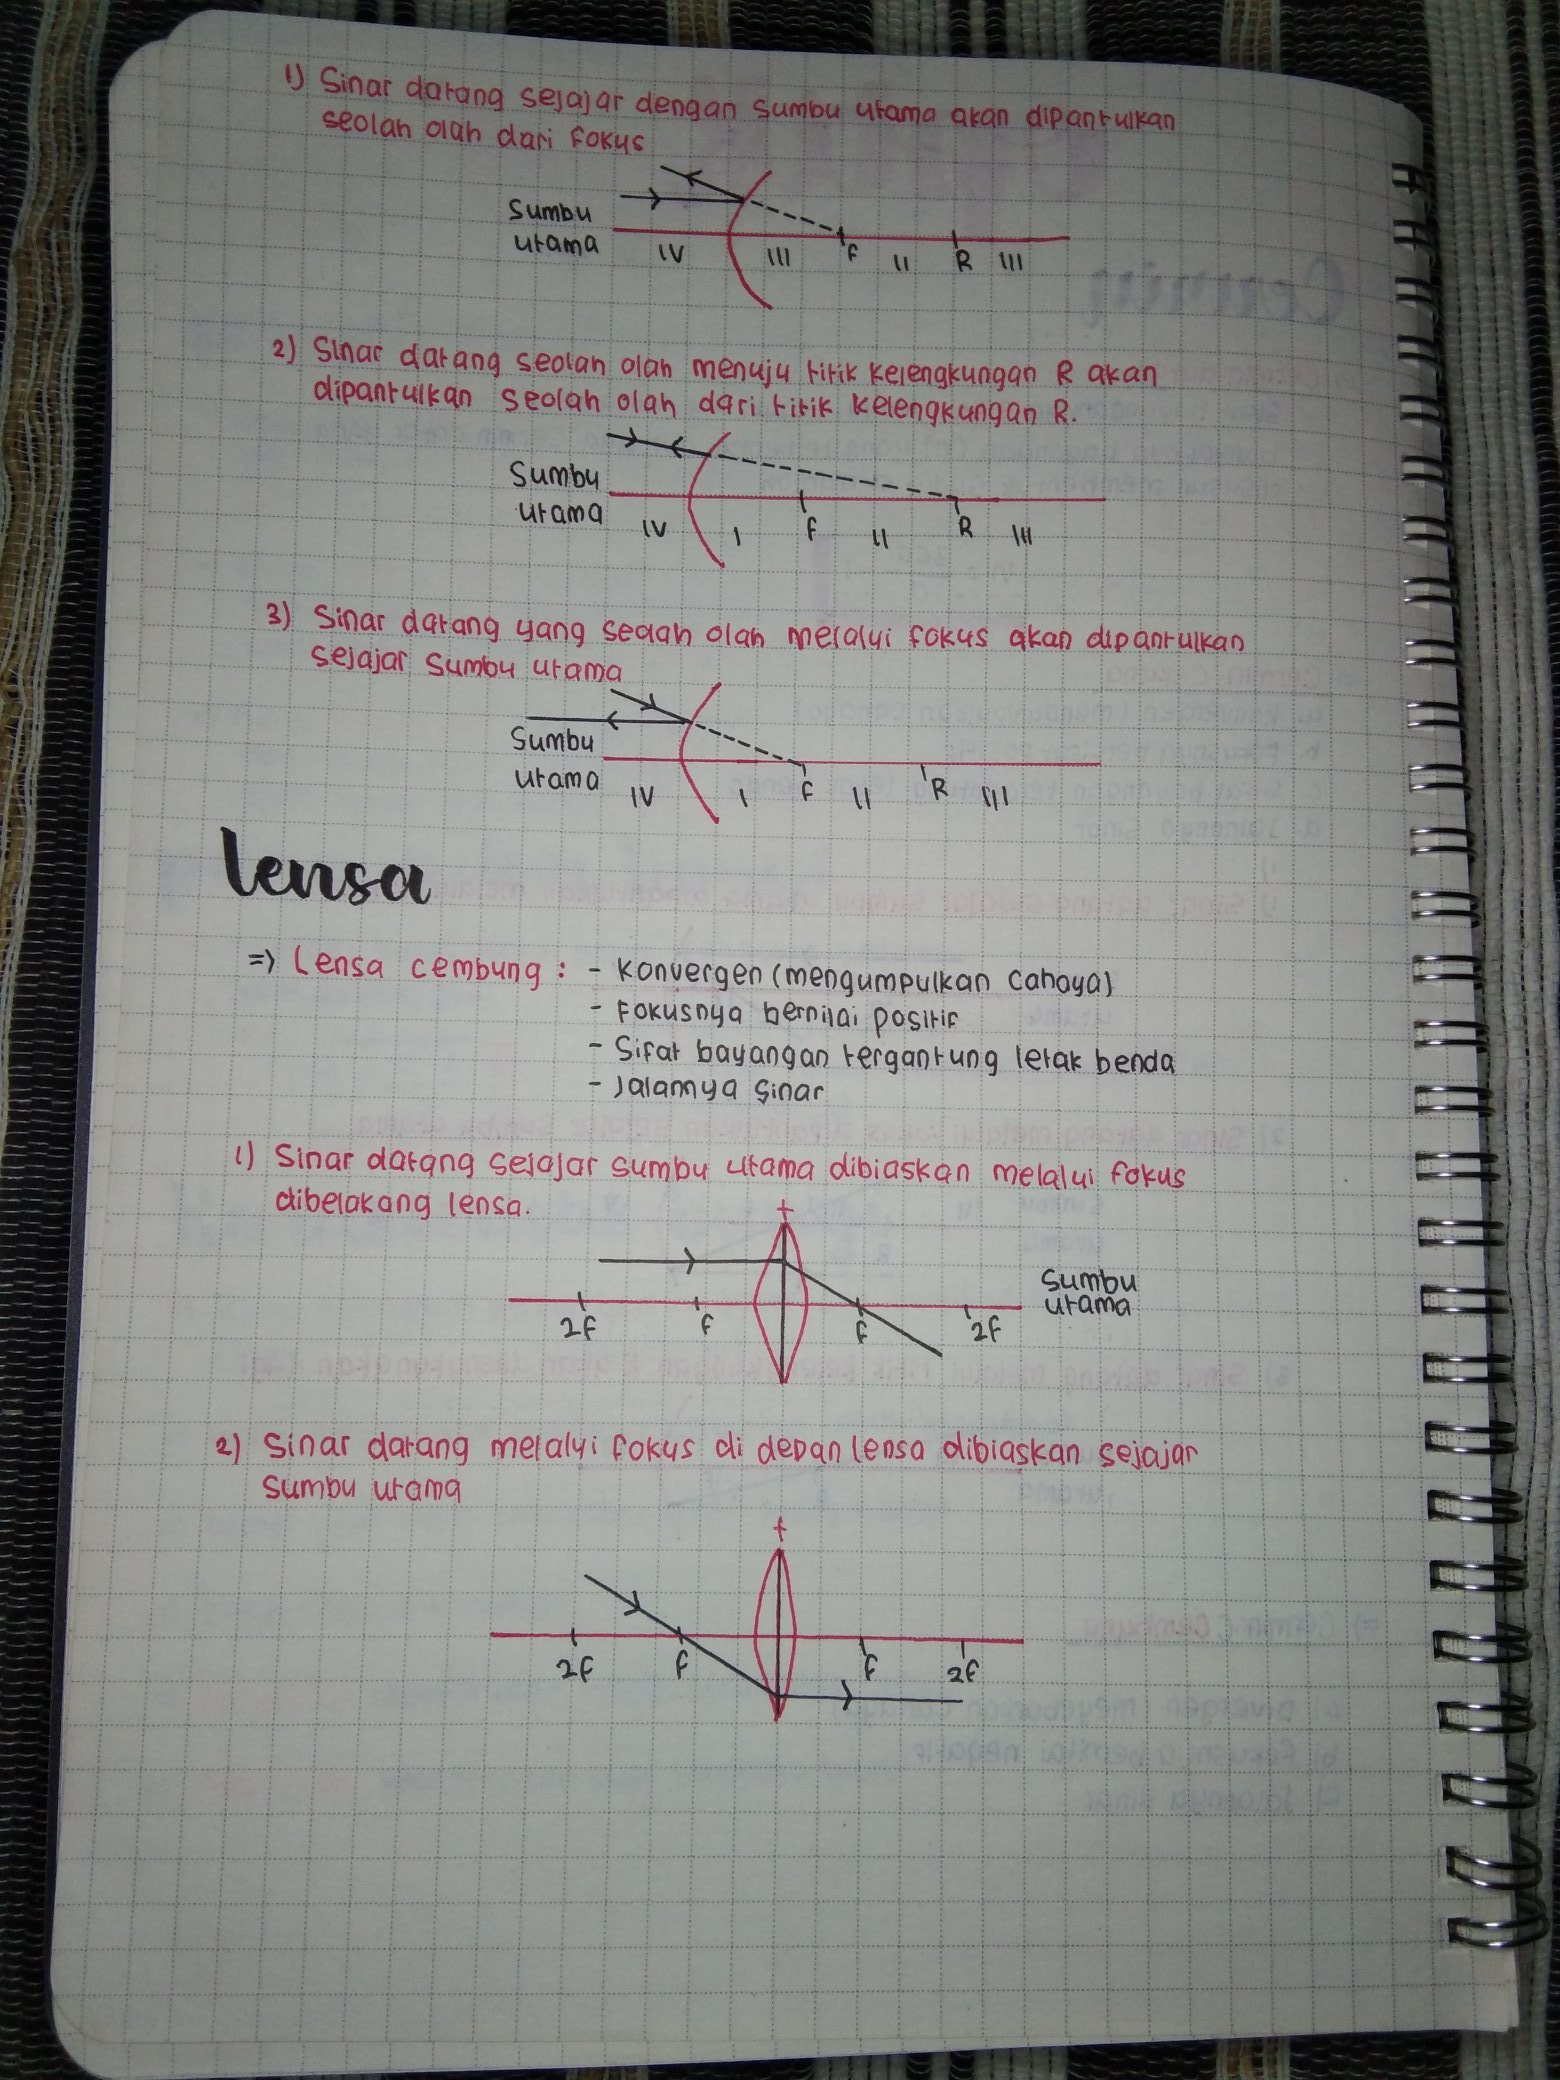 1) Sinar datang sejajar dengan sumbu utama akan dipantulkan
seolah olah dari fokus
Sumbu
utama
IV III F II R III
2) Sinar datang seolah olah menuju titik kelengkungan R akan
dipantulkan seolah olah dari titik kelengkungan R.
Sumbu
utama
IV I F II R III
3) Sinar datang yang seolah olah melalui fokus akan dipantulkan
sejajar sumbu utama
Sumbu
utama
IV I F II R III
Lensa
=> Lensa cembung : - Konvergen (mengumpulkan cahaya)
- Fokusnya bernilai positif
- Sifat bayangan tergantung letak benda
- Jalannya sinar
1) Sinar datang sejajar sumbu utama dibiaskan melalui fokus
dibelakang lensa.
+
Sumbu
utama
2F F F 2F
2) Sinar datang melalui fokus di depan lensa dibiaskan sejajar
sumbu utama
+
2F F F 2F